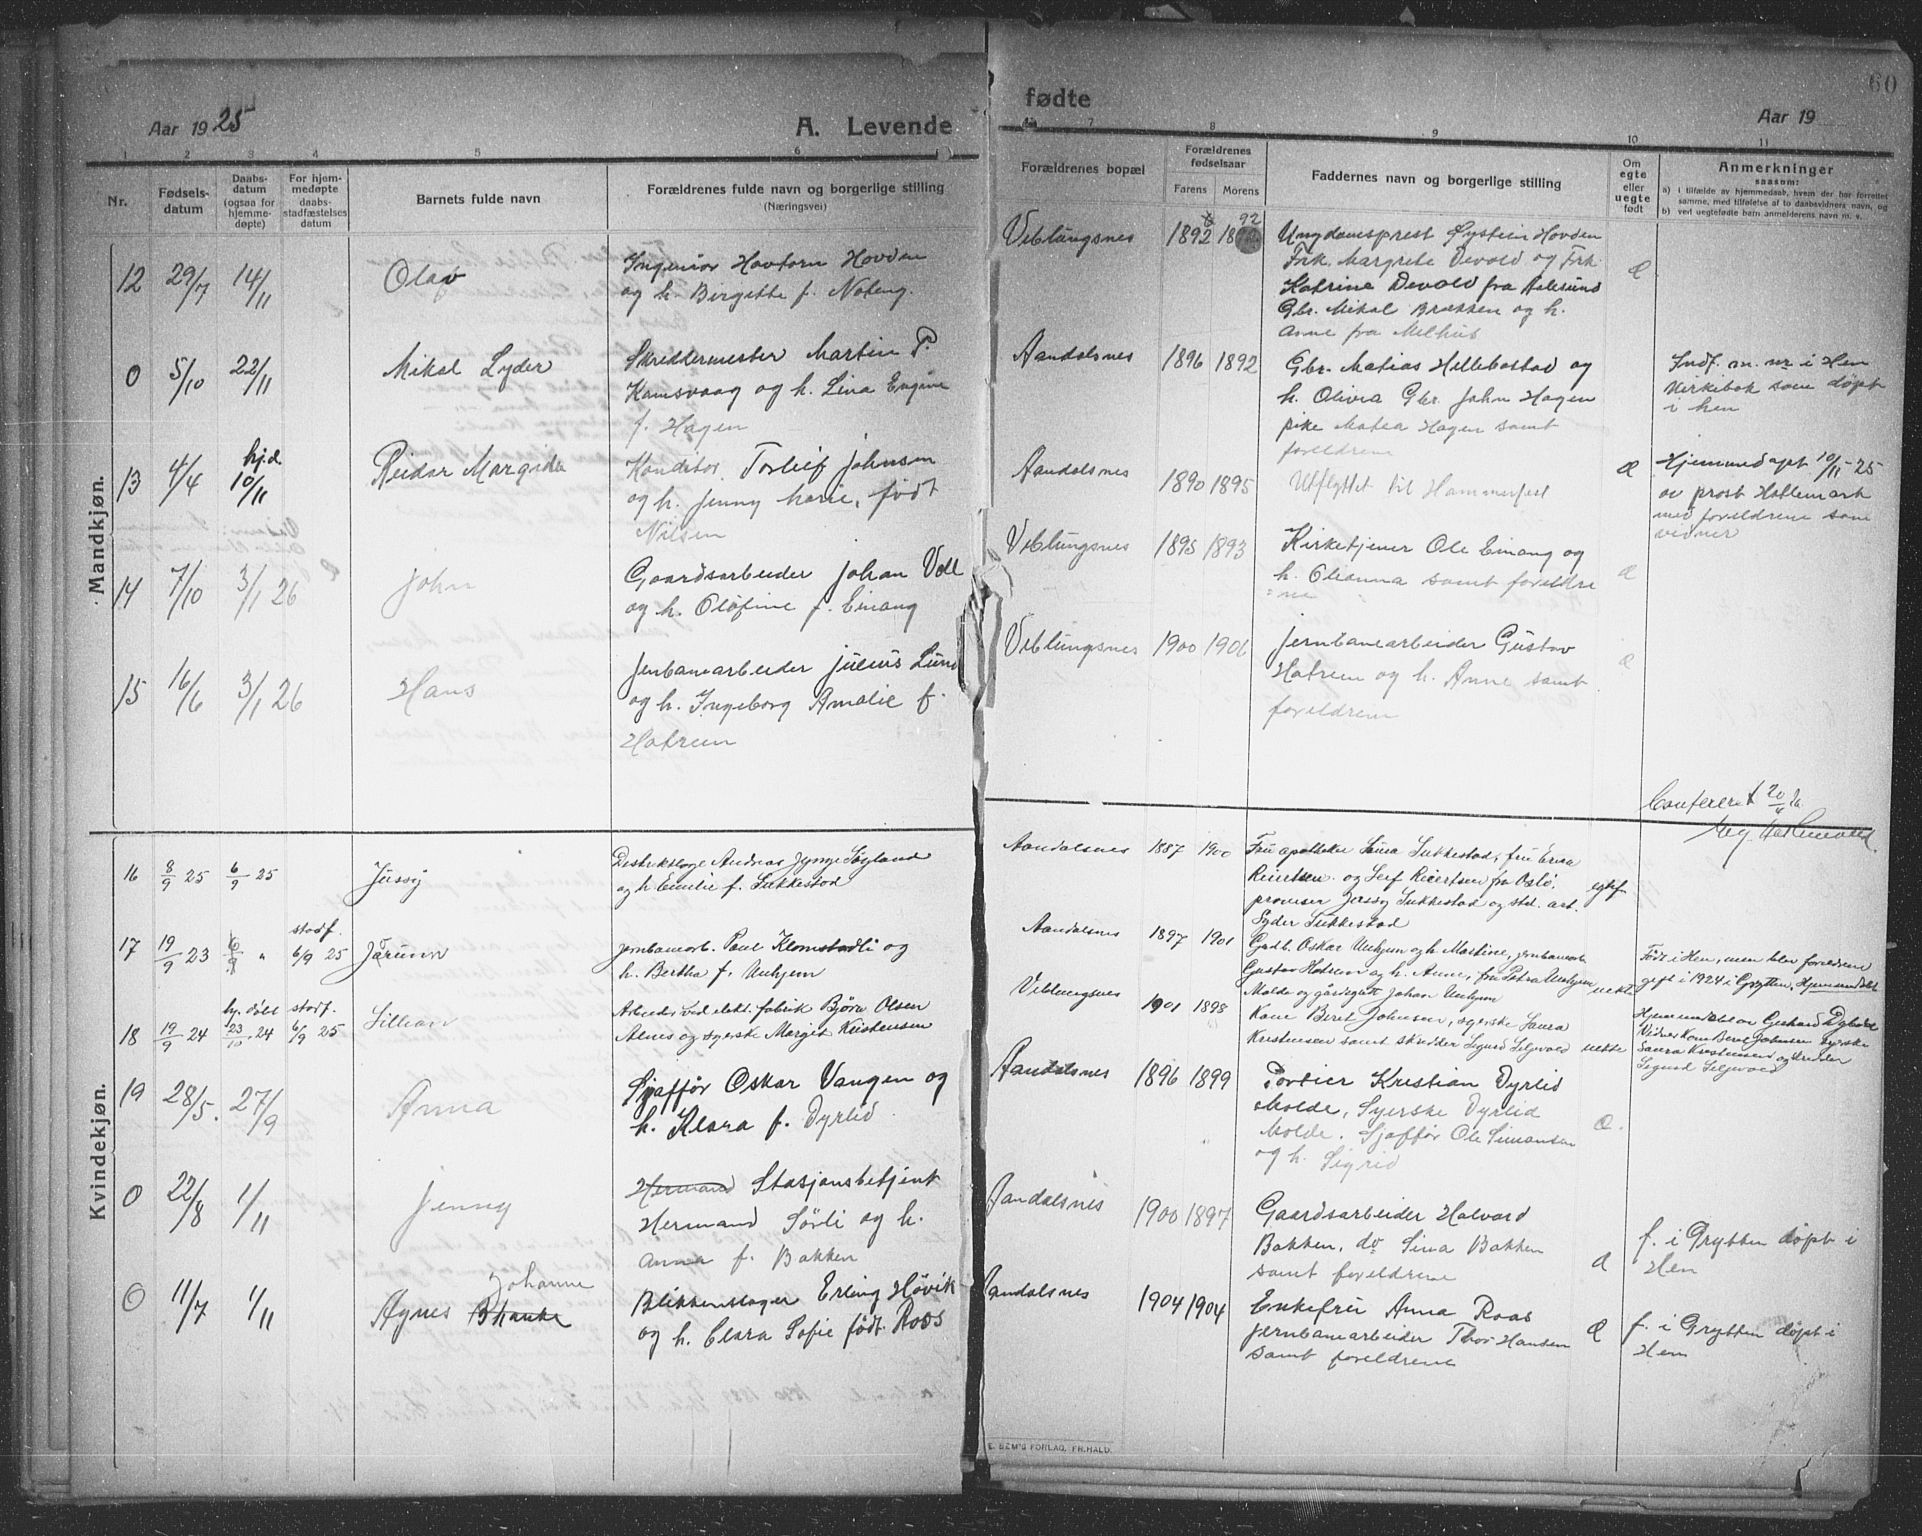 60
Aar 1925
A. Levende
fødte
Aar 19
1 2 3 4 5 6
7 8 9 10 11
Nr.
Fødsels-
datum
Daabs-
datum
(ogsaa for
hjemme-
døpte)
For hjem-
medøpte
daabs-
stadfæstelses
datum
Barnets fulde navn
Forældrenes fulde navn og borgerlige stilling
(Næringsvei)
Forældrenes bopæl
Forældrenes
fødselsaar
Farens Morens
Faddernes navn og borgerlige stilling
Om
egte
eller
uegte
født
Anmerkninger
saasom:
a) i tilfælde av hjemmedaab, hvem der har forrettet
samme, med tilføielse af to daabsvidners navn, og
b) ved uegtefødte børn anmelderens navn m. v.
Mandkjøn.
12 29/7 14/11 Olav
Ingeniør Hovtorn Hovden
og h. Birgitte f. Noteng.
Veblungsnes 1892 92
Ungdomsprest Øystein Hovden
Frk. Margrete Devold og Frk.
Katrine Devold fra Aalesund
Gbr. Mikal Brakken og h.
Anne fra Melhus
Æ
0 5/10 22/11 Mikal Lyder
Skreddermester Martin P.
Kamsvaag og h. Lina Engine
f. Hagen
Aandalsnes 1896 1892
Gbr. Matias Hellebostad og
h. Olivia Gbr. John Hagen
pike Matea Hagen samt
foreldrene
Indf. m. nr i Hen
kirkebok som døpt
i hen
13 4/4 hj.d. 10/11 Reidar Margido
Konditor Torleif Johnsen
og h. Jenny Marie, født
Nilsen
Aandalsnes 1890 1895
Utflyttet til Hammerfest
Æ
Hjemmedøpt 10/11-25
av prost Hatlemark
med foreldrene som
vidner
14 7/10 3/1 26 John
Gaardsarbeider Johan Voll
og h. Olofine f. Einang
Veblungsnes 1895 1893
Kirketjener Ole Einang og
h. Oleanna samt foreldre
ne
Æ
15 16/6 3/1 26 Hans
Jernbanearbeider Julius Lund
og h. Ingeborg Amalie f.
Hatrem
Veblungsnes 1900 1901
Jernbanearbeider Gustav
Hatrem og h. Anne samt
foreldrene
Æ
Confereret 20/4
Kvindekjøn.
16 8/9 25 6/9 25 Jussy
Distriktslæge Andreas Jynge Søyland
og h Emilie f. Sukkestad
Aandalsnes 1887 1900
Fru apotheker Laura Sukkestad, fru Erica
Reiertsen og Leif Reiertsen fra Oslo,
provisor Jussy Sukkestad og std. art.
Lyder Sukkestad
egtef
17 19/9 23 6/9 " stadf. 6/9 25 Jorunn
Jernbanearb. Paul Klomstadli og
h. Bertha f. Unhjem
Aandalsnes 1897 1901
Grdb. Oskar Unhjem og h. Martine, jernbanearb.
Gustav Hatrem og h. Anne, fru Petra Unhjem
Molde og gårdsgutt Johan Unhjem
uekt
Født i Hen, men blev foreldrene
gift i 1924 i Grytten, Hjemmedøbt
18 19/9 24 hj. døbt 23/10 24 stadf. 6/9 25 Lillian
Arbeider ved elekt. fabrik Bjørn Olsen
Alnes og syerske Margit Kristensen
Veblungsnes 1901 1898
Kone Beret Johnsen, syerske Laura
Kristensen samt skredder Sigurd Seljevold
uekte
Hjemmedøbt av Gerhard Dybvik
Vidner Kone Beret Johnsen syerske
Laura Kristensen og skredder
Sigurd Seljevold
19 28/5. 27/9 Anna
Sjaffør Oskar Vangen og
h. Klara f. Dyrlid
Aandalsnes 1896 1899
Portier Kristian Dyrlid
Molde, Syerske Dyrlid
Molde. Sjaffør Ole Simonsen
og h. Sigrid
Æ.
0 22/8 1/11 Jenny
Hermand Stasjonsbetjent
Hermand Sørli og h.
Anna f. Bakken
Aandalsnes 1900 1897
Gaardsarbeider Halvard
Bakken, do Lina Bakken
samt foreldrene
Æ
f. i Grytten døpt i
Hen
0 11/7 1/11 Agnes Johanne
Blikkenslager Erling Høvik
og h. Clara Sofie født Roos
Aandalsnes 1904 1904
Enkefru Anna Roas
Jernbanearbeider Thor Hansen
samt foreldrene
Æ
f. i Grytten døpt i
Hen
E. SEM'S FORLAG, FR.HALD.